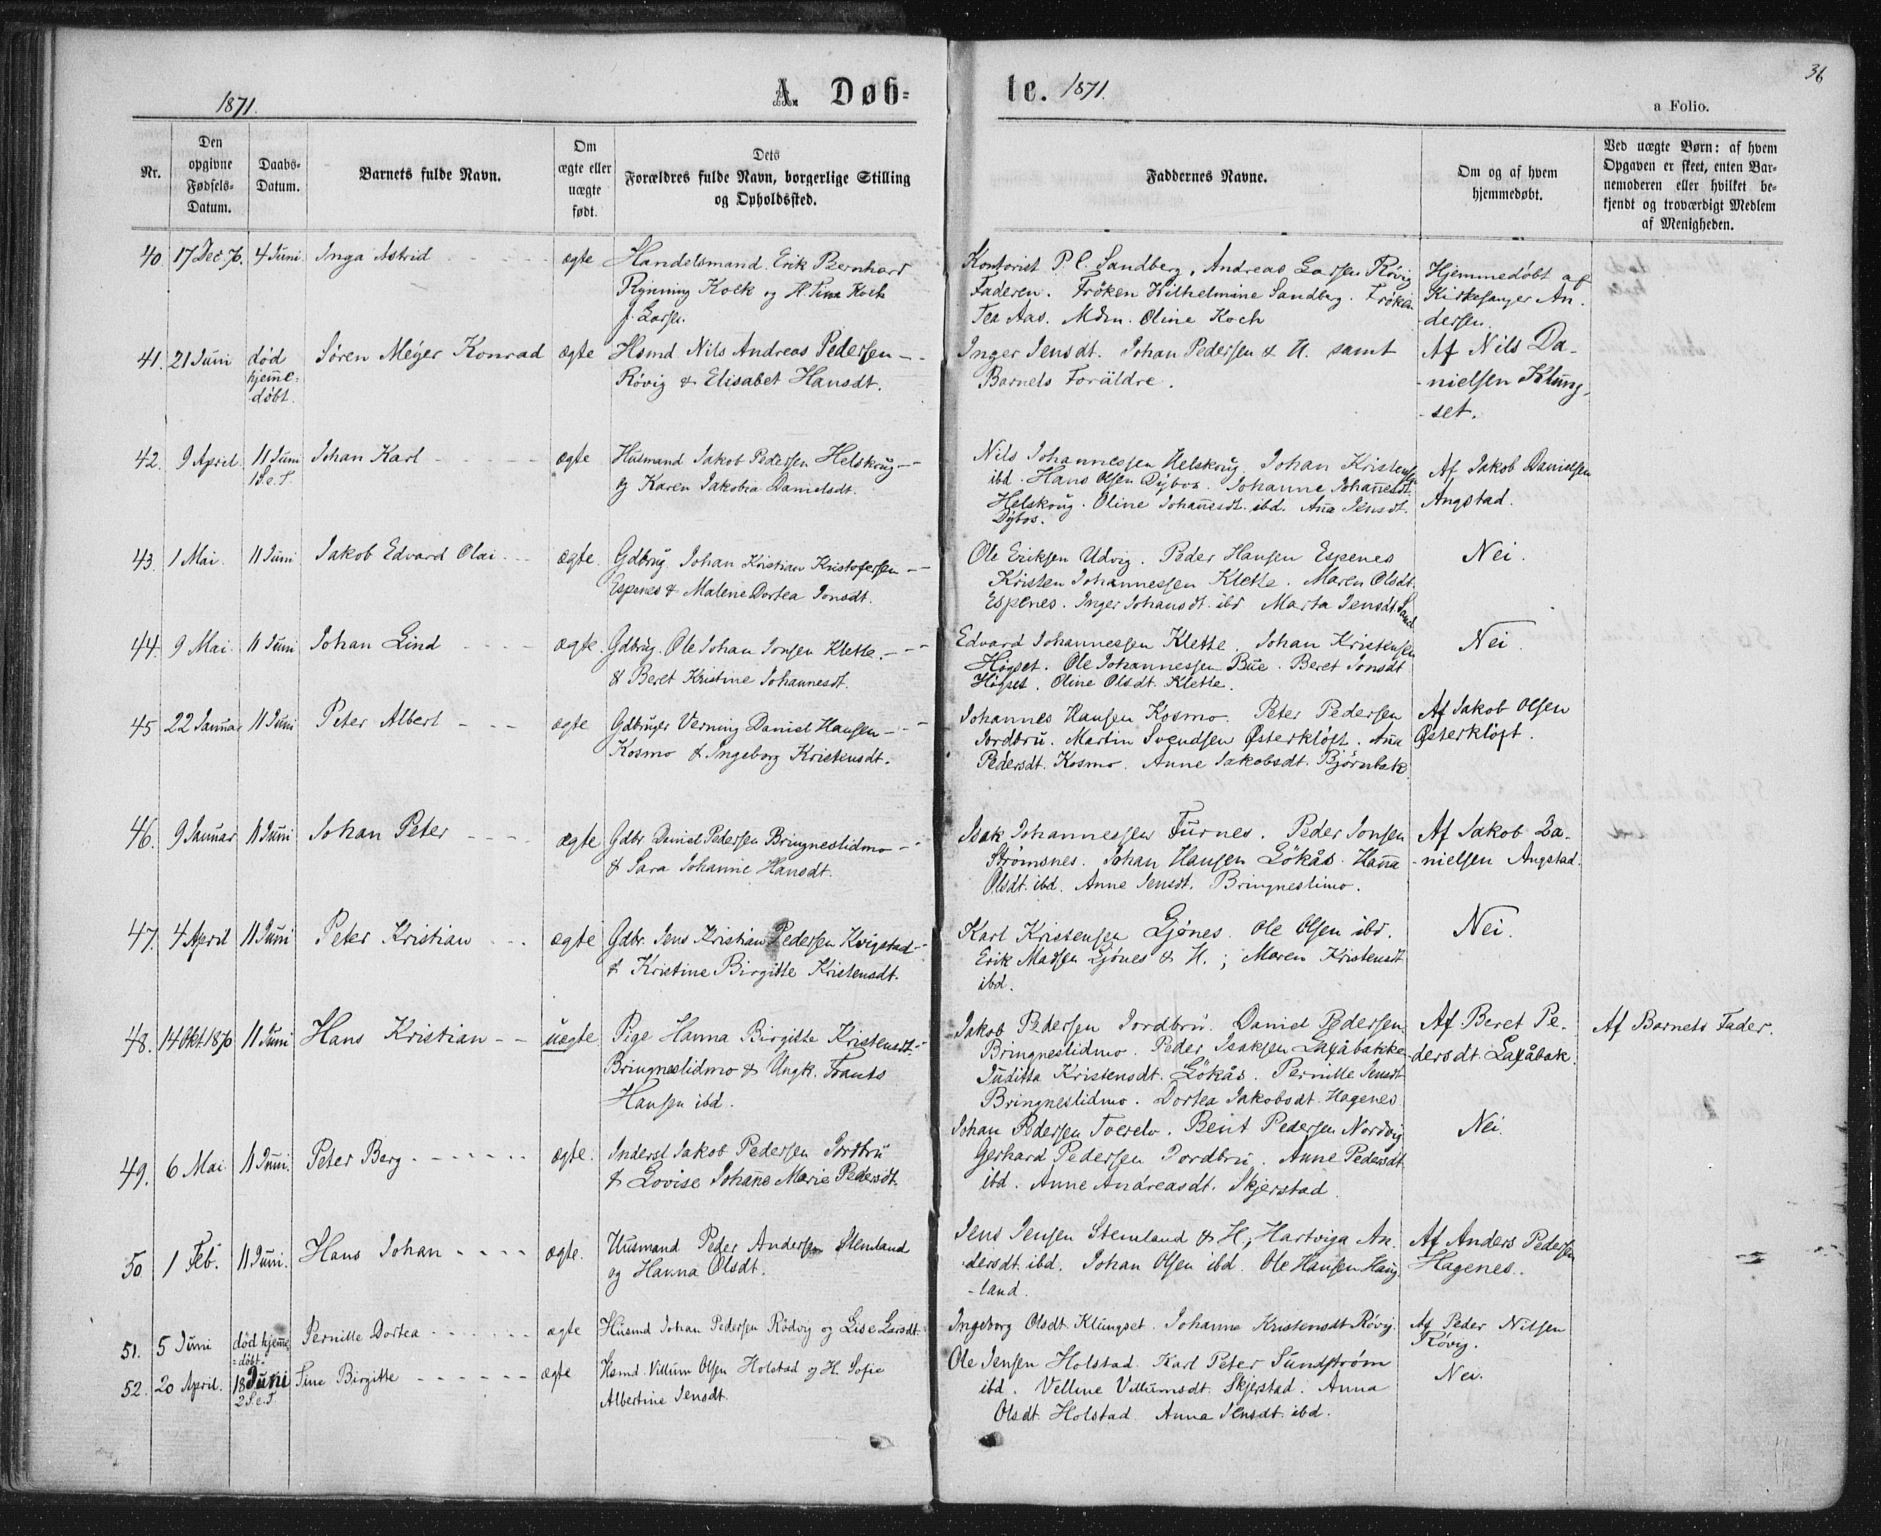 1871.
A. Døb=
te.
1871.
36
a Folio.
Nr.
Den
opgivne
Fødsels-
Datum.
Daabs-
Datum.
Barnets fulde Navn.
Om
ægte eller
uægte
født.
Dets
Forældres fulde Navn, borgerlige Stilling
og Opholdssted.
Faddernes Navne.
Om og af hvem
hjemmedøbt.
Ved uægte Børn: af hvem
Opgaven er skeet, enten Bar-
nemoderen eller hvilket be-
kjendt og troværdigt Medlem
af Menigheden.
40. 17 Dec 70. 4 Juni Inga Astrid ægte Handelsmand Erik Bernhard
Rynning Kock og H. Tina Koch
f. Larsen
Kontorist P. C. Sandberg, Andreas Larsen Røvig
Faderen. Frøken Wilhelmine Sandberg. Frøken
Tea Aas. Mdm. Oline Koch
Hjemmedøbt af
Kirkesanger An-
dersen.
41. 21 Juni død
hjemme-
døbt.
Søren Meyer Konrad ægte Hsmd Nils Andreas Pedersen
Røvig & Elisabet Hansdt.
Inger Jensdt. Johan Pedersen & H. samt
Barnets Forældre.
Af Nils Da-
-nielsen Klung-
-set.
42. 9 April 11 Juni
1 S. e. T.
Johan Karl ægte Husmand Jakob Pedersen Helskrug
og Karen Jakobia Danielsdt.
Nils Johannessen Helskrug. Johan Kristensen
ibd. Hans Olsen Dybos. Johanne Johannesdt.
Helskrug. Oline Johannesdt. ibd. Ana Jensdt.
Dybos.
Af Jakob Danielsen
Angstad.
43. 1 Mai 11 Juni Jakob Edvard Olai ægte. Gdbrug. Johan Kristian Kristofersen
Espenes & Malene Dortea Jonsdt.
Ole Eriksen Udvig. Peder Hansen Espenes
Kristen Johannessen Klette. Maren Olsdt.
Espenes. Inger Johansdt. ibd Marta Jensdt. Sand
Nei.
44. 9 Mai 11 Juni Johan Lind ægte. Gdbrug. Ole Johan Jonsen Klette.
& Beret Kristine Johannesdt.
Edvard Johannessen Klette. Johan Kristensen
Høgset. Ole Johannessen Bue. Beret Jonsdt
Høgset. Oline Olsdt. Klette.
Nei.
45 22 Januar 11 Juni Peter Albert ægte Gdbruger Verning Daniel Hansen
Kosmo & Ingeborg Kristensdt.
Johannes Hansen Kosmo. Peter Pedersen
Jordbru. Martin Svendsen Østerkløft. Ana
Pedersdt. Kosmo. Anne Jakobsdt. Bjørnbak
Af Jakob Olsen
Østerkløft.
46. 9 Januar 11 Juni Johan Peter ægte Gdbr. Daniel Pedersen Bringneslidmo
& Sara Johanne Hansdt.
Isak Johannessen Furnes. Peder Jonsen
Strømsnes. Johan Hansen Lökås. Hana
Olsdt. ibd. Anne Jensdt. Bringneslimo.
Af Jakob Da-
-nielsen Angstad.
47. 4 April 11 Juni Peter Kristian ægte Gdbr. Jens Kristian Pedersen Kvigstad
& Kristine Birgitte Kristensdt.
Karl Kristensen Ljønes. Ole Olsen ibd.
Erik Madsen Ljønes & H.; Maren Kristensdt
ibd.
Nei.
48. 14 Okt. 1870 11 Juni Hans Kristian uegte Pige Hanna Birgitte Kristensdt
Bringneslidmo & Ungk. Frants
Hansen ibd.
Jakob Pedersen Jordbru. Daniel Pedersen
Bringneslidmo. Peder Isaksen Laxåbakke
Juditta Kristensdt. Lökås. Pernille Jensdt
Bringneslidmo. Dortea Jakobsdt. Hagenes
Af Beret Pe-
dersdt Laxåbak.
Af Barnets Fader.
49. 6 Mai 11 Juni. Peter Berg ægte. Inderst Jakob Pedersen Jordbru
& Lovise Johane Marie Pedersdt.
Johan Pedersen Tverelv. Bent Pedersen Nordvig
Gerhard Pedersen Jordbru. Anne Pedersdt
ibd. Anne Andreasdt. Skjerstad.
Nei.
50 1 Feb. 11 Juni. Hans Johan ægte. Husmand Peder Andersen Stemland
og Hanna Olsdt.
Jens Jensen Stemland & H, Hartviga An-
dersdt. ibd. Johan Olsen ibd. Ole Hansen Haug-
-land.
Af Anders Pedersen
Hagenes.
51. 5 Juni død hjemme
-døbt.
Pernille Dortea ægte Husmd Johan Pedersen Rødvig og Lise Larsdt.
Ingeborg Olsdt. Klungset. Johanna Kristensdt Røvig.
Af Peder Nilsen
Røvig.
52. 20 April. 18 Juni
2 S. e. T
Sine Birgitte ægte Hsmd. Villum Olsen Holstad og H. Sofie
Albertine Jensdt.
Ole Jensen Holstad. Karl Peter Sundstrøm
ibd. Velline Villumsdt. Skjerstad. Anna
Olsdt. Holstad. Anna Jensdt. ibd.
Nei.